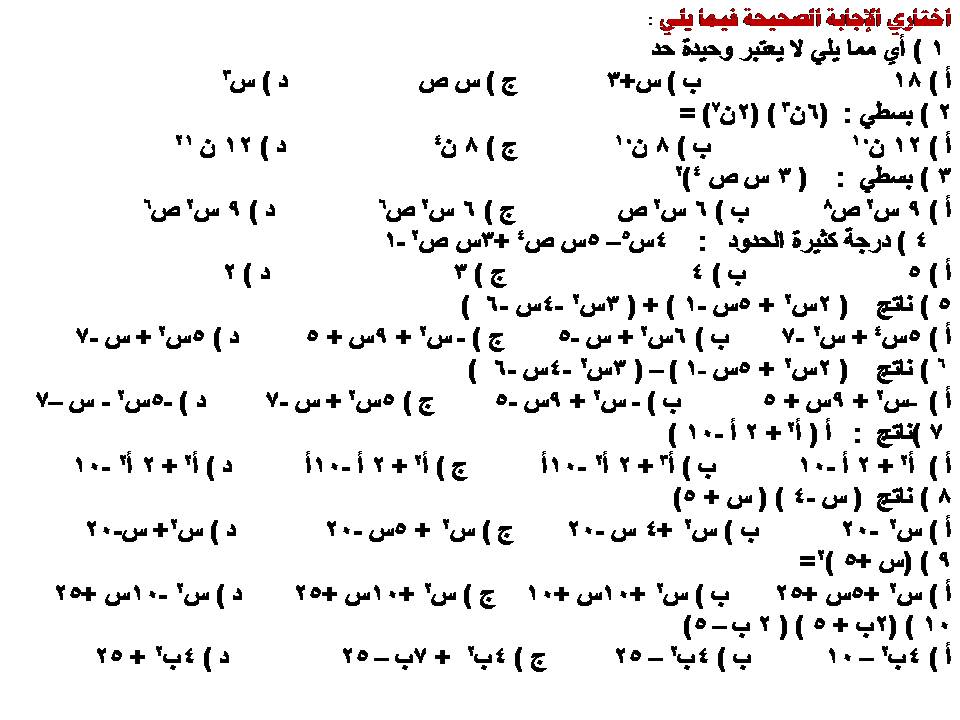 اختاري الإجابة الصحيحة فيما يلي :
١ ) أي مما يلي لا يعتبر وحيدة حد
أ ) ١٨ ب ) س+٣ ج ) س ص د ) س٣
٢ ) بسطي : (٦ن٣ ) (٢ن٧) =
أ ) ١٢ ن١٠ ب ) ٨ ن١٠ ج ) ٨ ن٤ د ) ١٢ ن ٢١
٣ ) بسطي : ( ٣ س ص ٤ )٢
أ ) ٩ س٢ ص٨ ب ) ٦ س٢ ص ج ) ٦ س٢ ص٦ د ) ٩ س٢ ص٦
٤ ) درجة كثيرة الحدود : ٤س٥– ٥س ص٤ +٣س ص٢ -١
أ ) ٥ ب ) ٤ ج ) ٣ د ) ٢
٥ ) ناتج ( ٢س٢ + ٥س -١ ) + ( ٣س٢ -٤س -٦ )
أ ) ٥س٤ + س٢ -٧ ب ) ٦س٢ + س -٥ ج ) - س٢ + ٩س + ٥ د ) ٥س٢ + س -٧
٦ ) ناتج ( ٢س٢ + ٥س -١ ) – ( ٣س٢ -٤س -٦ )
أ ) –س٢ + ٩س + ٥ ب ) - س٢ + ٩س -٥ ج ) ٥س٢ + س -٧ د ) -٥س٢ - س –٧
٧ )ناتج : أ ( أ٢ + ٢ أ -١٠ )
أ ) أ٢ + ٢ أ -١٠ ب ) أ٣ + ٢ أ٢ -١٠أ ج ) أ٢ + ٢ أ -١٠أ د ) أ٢ + ٢ أ٢ -١٠
٨ ) ناتج ( س -٤ ) ( س + ٥)
أ ) س٢ -٢٠ ب ) س٢ +٤ س -٢٠ ج ) س٢ + ٥س -٢٠ د ) س٢+ س-٢٠
٩ ) (س +٥ )٢=
أ ) س٢ +٥س +٢٥ ب ) س٢ +١٠س +١٠ ج ) س٢ +١٠س +٢٥ د ) س٢ -١٠س +٢٥
١٠ ) (٢ب + ٥ ) ( ٢ ب – ٥)
أ ) ٤ب٢ – ١٠ ب ) ٤ب٢ – ٢٥ ج ) ٤ب٢ + ٧ب – ٢٥ د ) ٤ب٢ + ٢٥